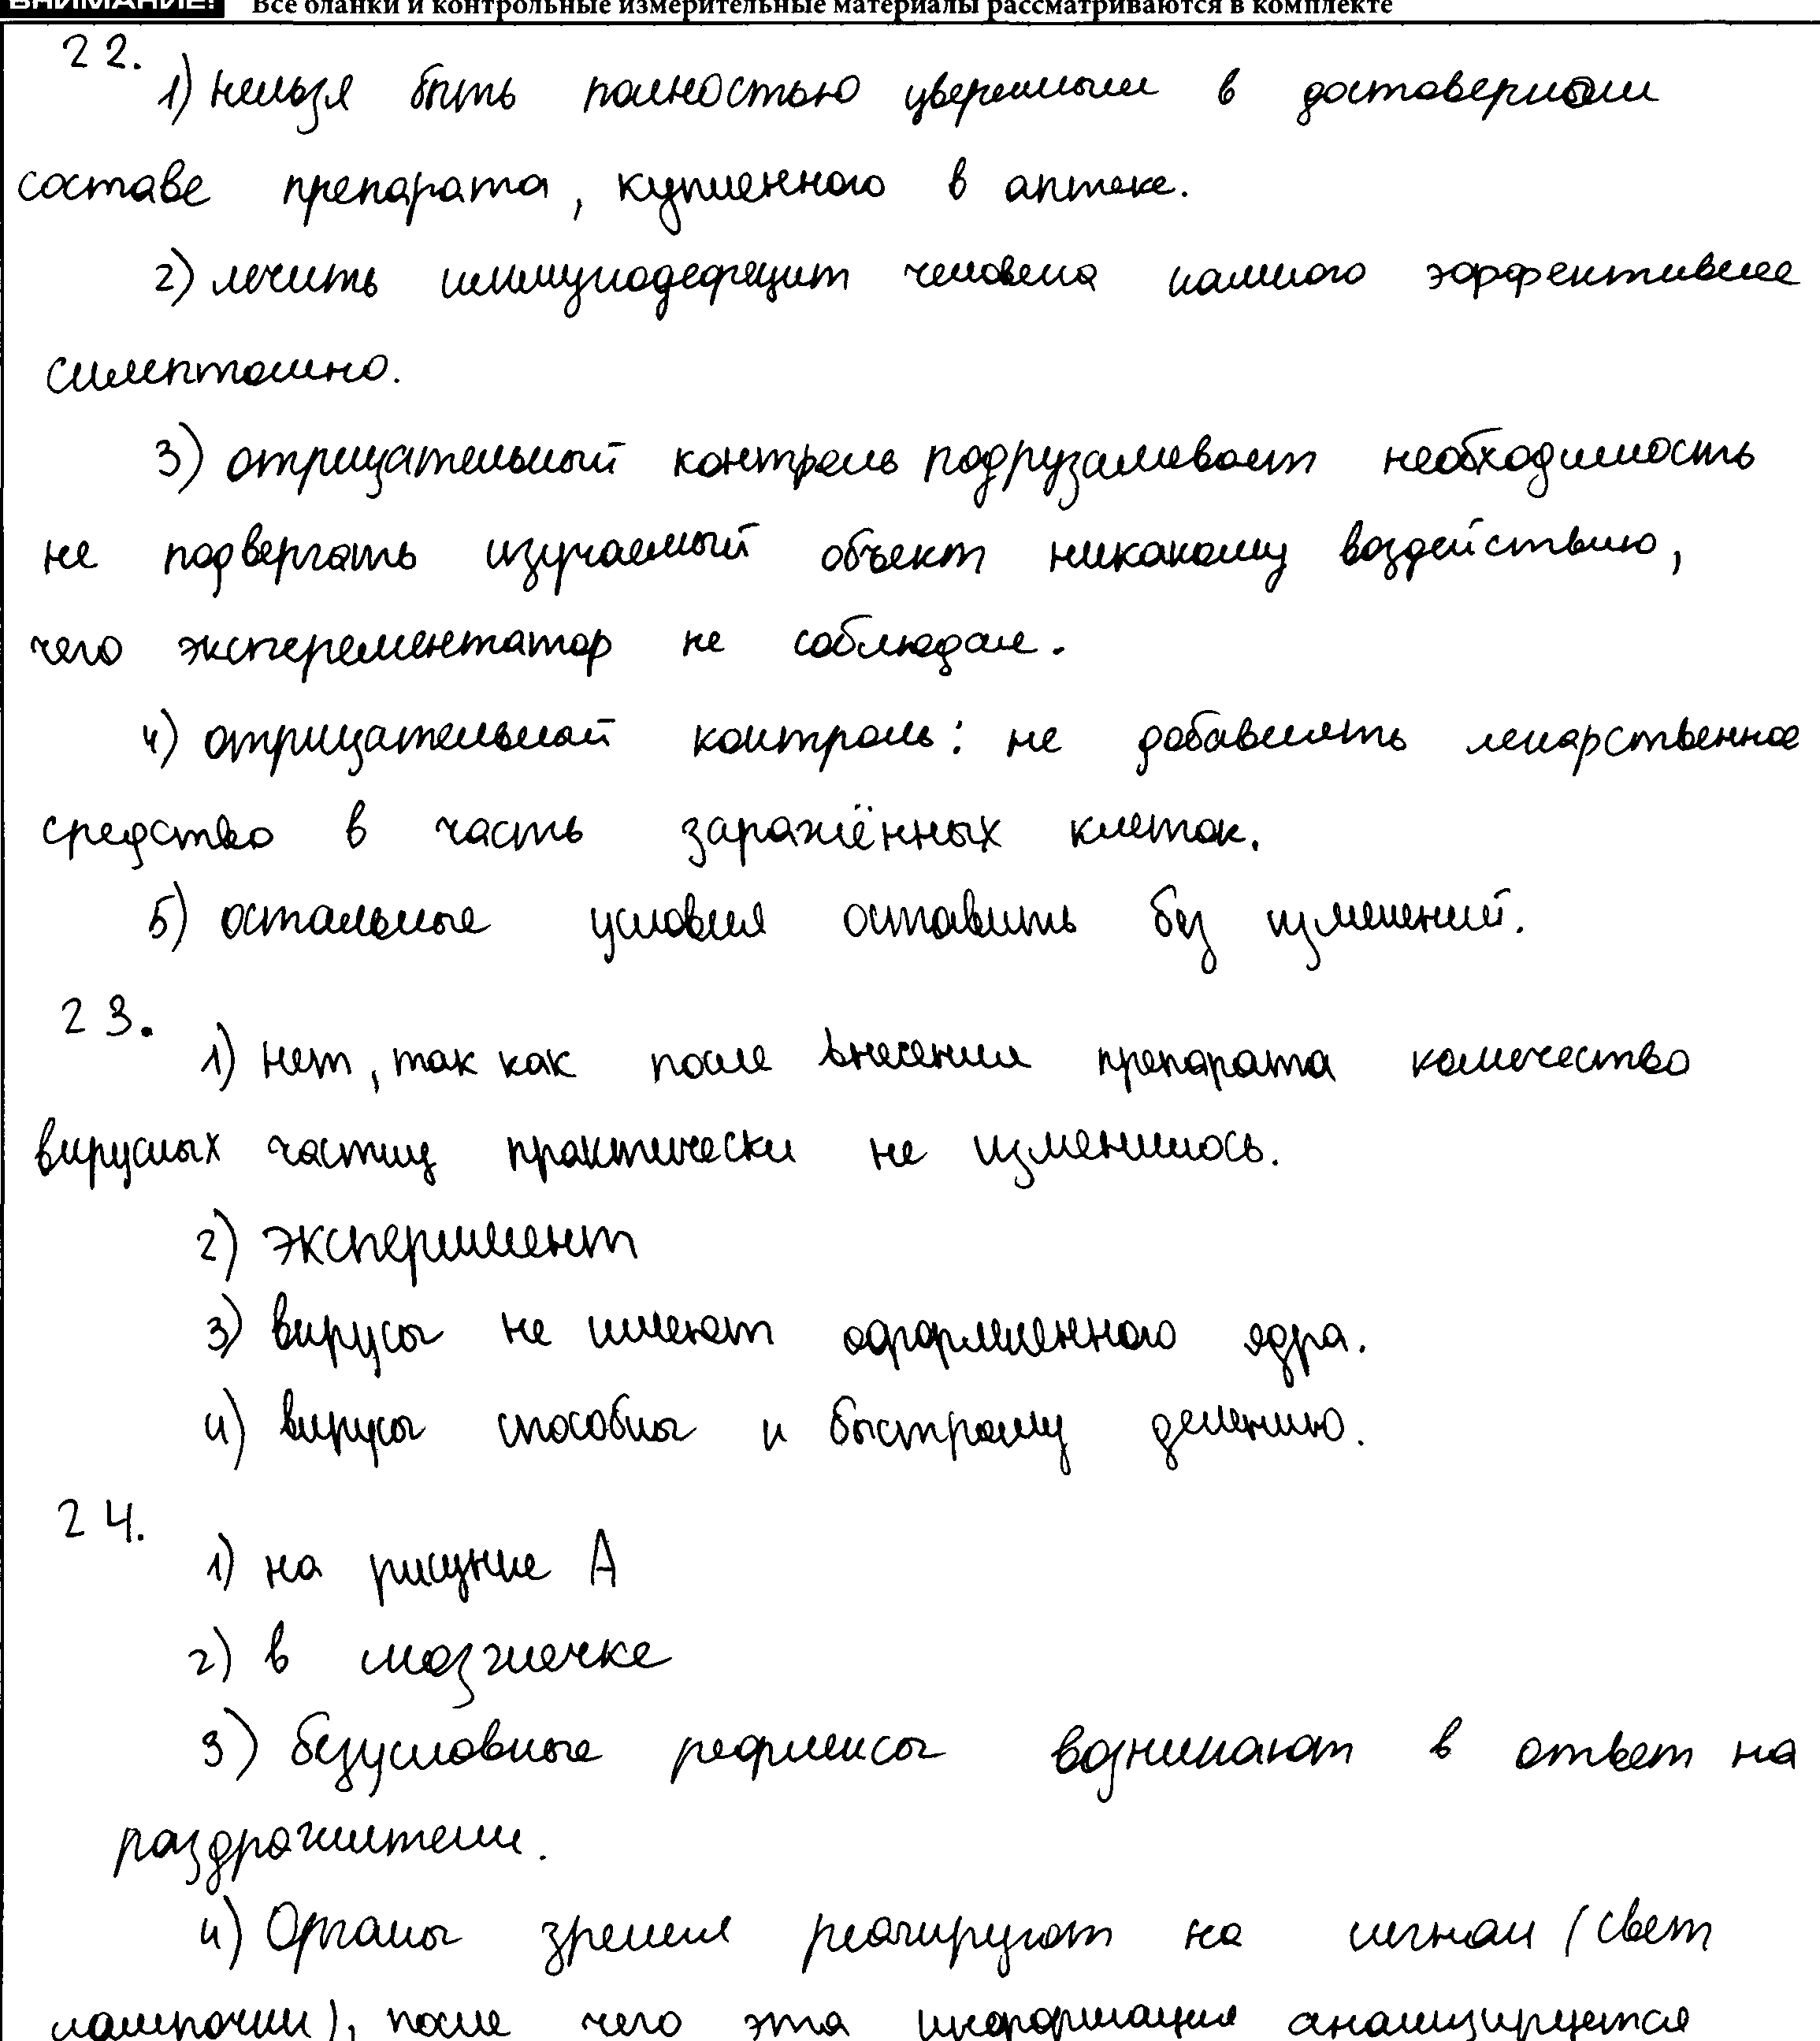 ВНИМАНИЕ! Все бланки и контрольные измерительные материалы рассматриваются в комплекте
22.
1) нельзя быть полностью уверенным в достоверном
составе препарата, купленного в аптеке.
2) лечить иммунодефецит человека намного эффективнее
симптомно.
3) отрицательный контроль подрузамевает необходимость
не подвергать изучаемый объект никакому воздействию,
чего эксперементатор не соблюдал.
4) отрицательный контроль: не добавлять лекарственное
средство в часть заражённых клеток.
5) остальные условия оставить без изменений.
23.
1) нет, так как после внесения препарата количество
вирусных частиц практически не изменилось.
2) эксперимент
3) вирусы не имеют оформленного ядра.
4) вирусы способны к быстрому делению.
24.
1) на рисунке А
2) в мозжечке
3) безусловные рефлексы возникают в ответ на
раздражители.
4) Органы зрения реагируют на сигнал (свет
лампочки), после чего эта информация анализируется